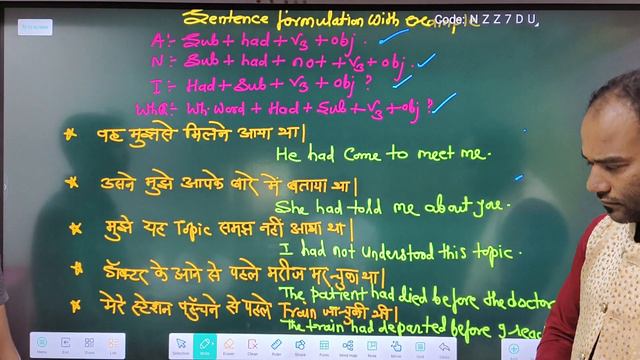 Sentence formulation with example
Code: N Z Z 7 D U
A:- Sub + had + V3 + obj.
N:- Sub + had + not + V3 + obj.
I:- Had + Sub + V3 + obj ?
WhQ:- Wh. Word + Had + Sub + V3 + obj ?
* वह मुझसे मिलने आया था |
He had come to meet me.
* उसने मुझे आपके बारे में बताया था |
She had told me about you.
* मुझे यह Topic समझ नहीं आया था |
I had not understood this topic.
* डॉक्टर के आने से पहले मरीज मर चुका था |
The patient had died before the doctor
* मेरे स्टेशन पहुँचने से पहले Train जा चुकी थी |
The train had departed before I reac
Menu Exit Share Selection Write Eraser Clean Ruler Share Forms Mind map More Undo